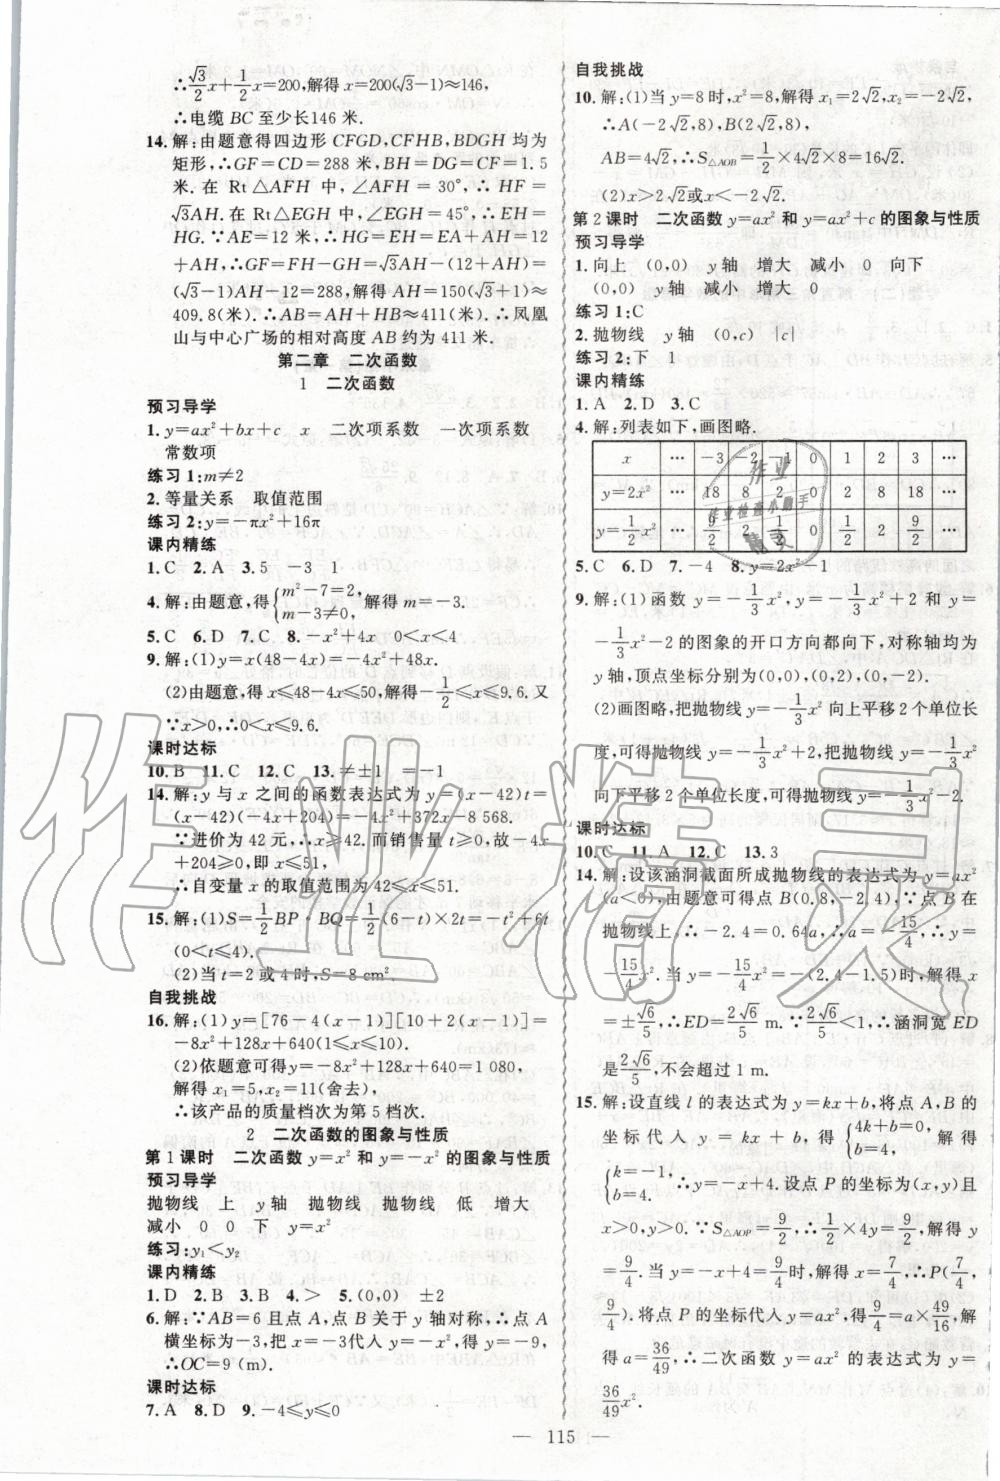 ∴√3/2 x+1/2 x=200,解得 x=200(√3-1)≈146,
∴电缆 BC 至少长146 米.
14.解:由题意得四边形 CFGD, CFHB, BDGH 均为
矩形,∴GF=CD=288 米,BH=DG=CF=1.5
米. 在 Rt△AFH 中,∠AFH = 30°,∴ HF =
√3AH. 在 Rt△EGH 中,∠EGH=45°,∴EH=
HG. ∵AE=12 米,∴HG=EH=EA+AH=12
+AH,∴GF=FH-GH=√3AH-(12+AH)=
(√3-1)AH-12=288,解得 AH=150(√3+1)≈
409.8(米),∴AB=AH+HB≈411(米).∴凤凰
山与中心广场的相对高度 AB 约为 411 米.
第二章 二次函数
1 二次函数
预习导学
1.y=ax²+bx+c x 二次项系数 一次项系数
常数项
练习 1:m≠2
2.等量关系 取值范围
练习 2:y=-πx²+16π
课内精练
1.C 2.A 3.5 -3 1
4.解:由题意,得{m²-7=2, m-3≠0, 解得 m=-3.
5.C 6.D 7.C 8.-x²+4x 0<x<4
9.解:(1)y=x(48-4x)=-4x²+48x.
(2)由题意,得 x≤48-4x≤50,解得 x≤9.6.又
∵x>0,∴0<x≤9.6.
课时达标
10.B 11.C 12.C 13.≠±1 =-1
14.解:y 与 x 之间的函数表达式为 y=(x-42)t=
(x-42)(-4x+204)=-4x²+372x-8 568.
∵进价为 42 元,∴x≥42. 而销售量 t≥0,故-4x
+204≥0,即 x≤51,
∴自变量 x 的取值范围为 42≤x≤51.
15.解:(1)S=1/2 BP·BQ=1/2(6-t)×2t=-t²+6t
(0<t≤4).
(2)当 t=2 或 4 时,S=8 cm².
自我挑战
16.解:(1)y=[76-4(x-1)][10+2(x-1)]=
-8x²+128x+640(1≤x≤10).
(2)依题意可得y=-8x²+128x+640=1 080,
解得x₁=5,x₂=11(舍去),
∴该产品的质量档次为第 5 档次.
2 二次函数的图象与性质
第 1 课时 二次函数 y=x² 和 y=-x² 的图象与性质
预习导学
抛物线 上 y 轴 抛物线 抛物线 低 增大
减小 0 0 下 y=x²
练习:y₁<y₂
课内精练
1.D 2.B 3.B 4.> 5.(0,0) ±2
6.解:∵AB=6 且点 A、点 B 关于 y 轴对称,∴点 A
横坐标为-3,把 x=-3代人 y=-x²,得 y=-9,
∴OC=9 (m).
课时达标
7.A 8.D 9.-4≤y≤0
自我挑战
10.解:(1)当 y=8时,x²=8,解得 x₁=2√2,x₂=-2√2,
∴A(-2√2,8),B(2√2,8),
AB=4√2,∴S△AOB=1/2×4√2×8=16√2.
(2)x>2√2或x<-2√2.
第 2 课时 二次函数 y=ax² 和 y=ax²+c 的图象与性质
预习导学
1.向上 (0,0) y 轴 增大 减小 0 向下
(0,0) y轴 减小 增大 0
练习 1:C
2.抛物线 y 轴 (0,c) |c|
练习 2:下 1
课内精练
1.A 2.D 3.C
4.解:列表如下,画图略.
x … -3 -2 -1 0 1 2 3 …
y=2x² … 18 8 2 0 2 8 18 …
y=1/2 x² … 9/2 2 1/2 0 1/2 2 9/2 …
5.C 6.D 7.-4 8.y=2x²-1
9.解:(1) 函数 y=-1/3 x², y=-1/3 x²+2 和 y=
-1/3 x²-2 的图象的开口方向都向下,对称轴均为
y 轴,顶点坐标分别为(0,0),(0,2),(0,-2).
(2)画图略,把抛物线 y=-1/3 x² 向上平移 2 个单位长
度,可得抛物线 y=-1/3 x²+2,把抛物线 y=-1/3 x²
向下平移 2 个单位长度,可得抛物线y=-1/3 x²-2.
课时达标
10.C 11.A 12.C 13.3
14.解:设该涵洞截面所成抛物线的表达式为 y=ax²
(a<0),由题意可得点 B(0.8,-2.4),∵点 B 在
抛物线上,∴-2.4=0.64a,∴a=-15/4,∴y=
-15/4 x². 当 y=-15/4 x²=-(2.4-1.5)时,解得 x
=±√6/5,∴ED=2√6/5 m.∵2√6/5<1,∴涵洞宽 ED
是2√6/5,不会超过 1 m.
15.解:设直线 l 的表达式为 y=kx+b,将点 A,B 的
坐标代人 y = kx + b, 得 {4k+b=0, b=4, 解得
{k=-1, b=4. ∴y=-x+4.设点 P 的坐标为(x,y)且
x>0,y>0.∵S△AOP=9/2,∴1/2×4y=9/2,解得 y=
9/4.当 y=-x+4=9/4时,解得 x=7/4,∴P(7/4,
9/4).将点 P 的坐标代人 y=ax²,得9/4=a×49/16,解
得 a=36/49,∴二次函数 y=ax² 的表达式为 y=
36/49 x².
— 115 —
作业精灵
作业
作业检查小助手
精灵